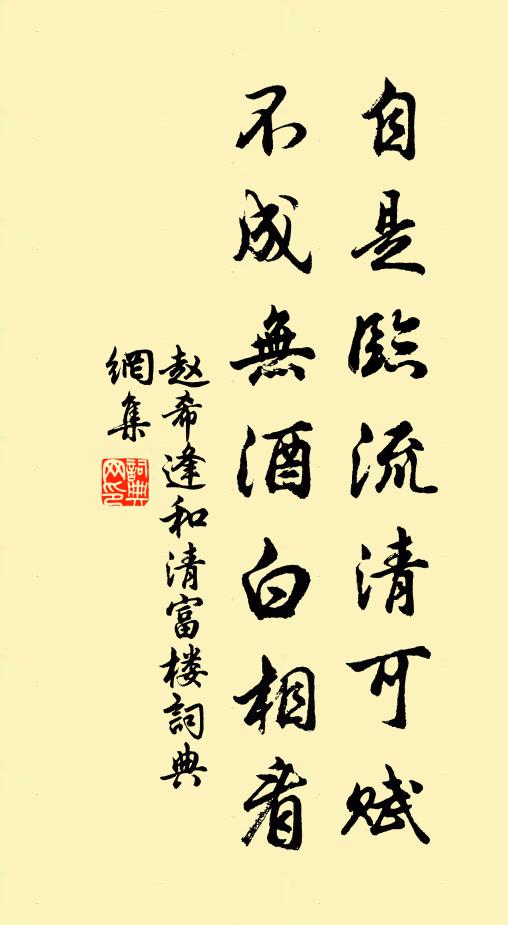 自是臨流清可赋
不成無酒白相看
赵希逢和清富楼詞典
網集
詞典網印